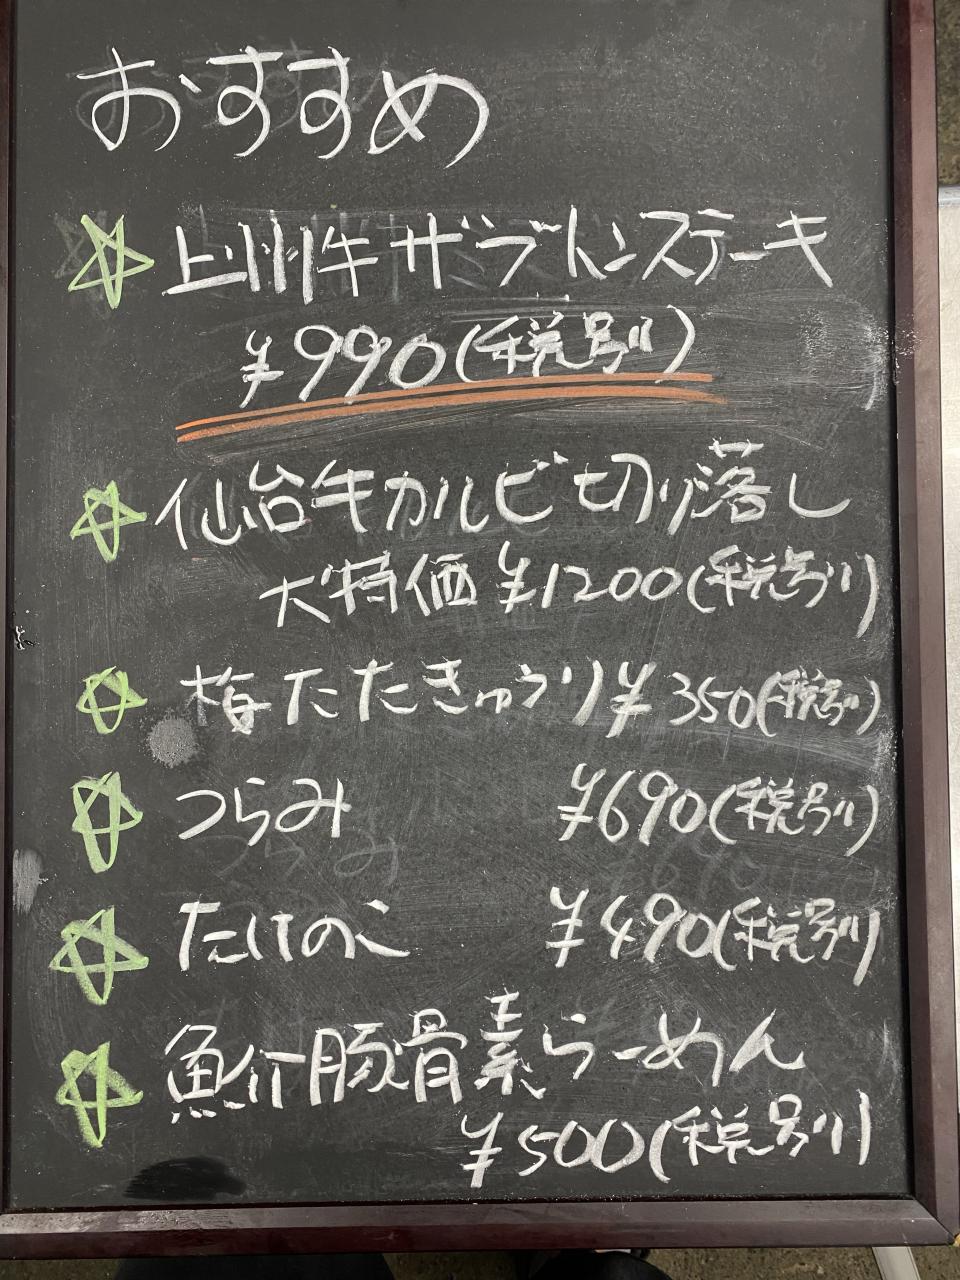 おすすめ
上州牛ザブトンステーキ
¥990(税別)
仙台牛カルビ切り落し
大特価 ¥1200(税別)
梅たたきゅうり ¥350(税別)
つらみ ¥690(税別)
たけのこ ¥490(税別)
魚介豚骨素らーめん
¥500(税別)